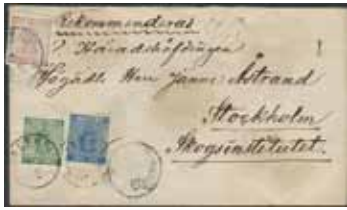 Rekommenderas
? Häradshöfdingen
Högädle Herr Janne Åstrand
Stockholm
Skogsinstitutet.